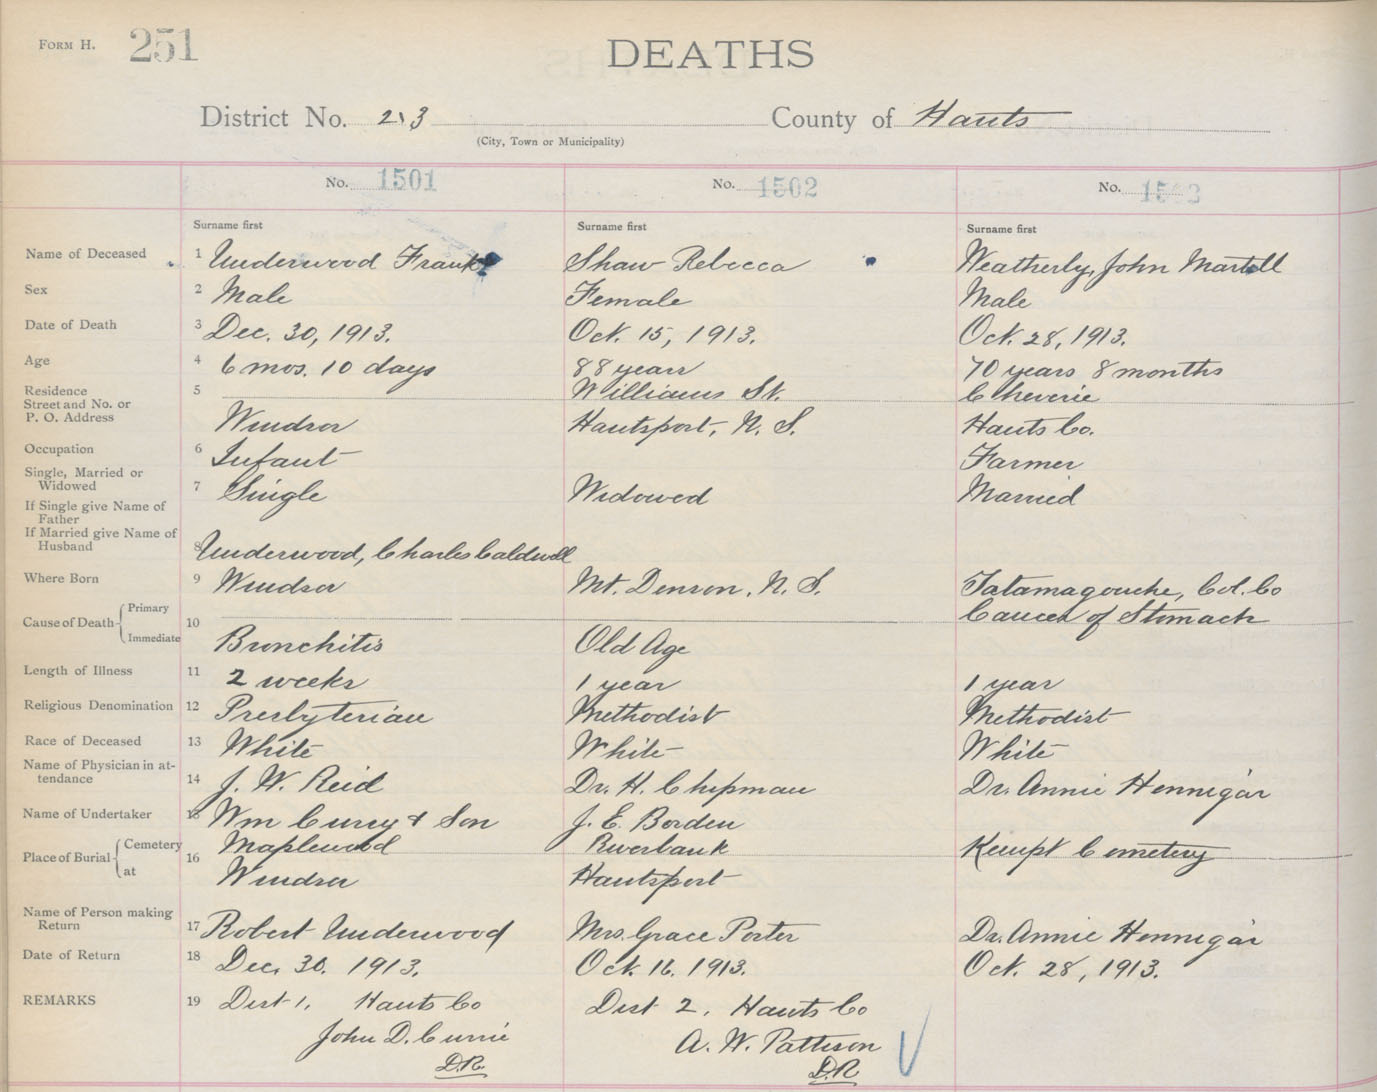 FORM H. 251
DEATHS
District No. 2, 3 County of Hants
(City, Town or Municipality)
No. 1501 No. 1502 No. 1503
Surname first Surname first Surname first
Name of Deceased 1 Underwood Frank Shaw Rebecca Weatherby, John Martell
Sex 2 Male Female Male
Date of Death 3 Dec. 30, 1913. Oct. 15, 1913. Oct. 28, 1913.
Age 4 6 mos. 10 days 88 years 70 years 8 months
Residence 5 Williams St. Cheverie
Street and No. or
P. O. Address Windsor Hantsport, N. S. Hants Co.
Occupation 6 Infant Farmer
Single, Married or
Widowed 7 Single Widowed Married
If Single give Name of
Father
If Married give Name of
Husband 8 Underwood, Charles Caldwell
Where Born 9 Windsor Mt. Denson, N. S. Tatamagouche, Col. Co
Cause of Death Primary 10 Cancer of Stomach
Immediate Bronchitis Old Age
Length of Illness 11 2 weeks 1 year 1 year
Religious Denomination 12 Presbyterian Methodist Methodist
Race of Deceased 13 White White White
Name of Physician in at-
tendance 14 J. W. Reid Dr. H. Chipman Dr. Annie Hennigar
Name of Undertaker 15 Wm Curry & Son J. E. Borden
Place of Burial Cemetery 16 Maplewood Riverbank Kempt Cemetery
at Windsor Hantsport
Name of Person making
Return 17 Robert Underwood Mrs. Grace Porter Dr. Annie Hennigar
Date of Return 18 Dec. 30. 1913. Oct. 16. 1913. Oct. 28, 1913.
REMARKS 19 Dist 1. Hants Co Dist 2. Hants Co
John D. Currie A. W. Patterson
D.R. D.R